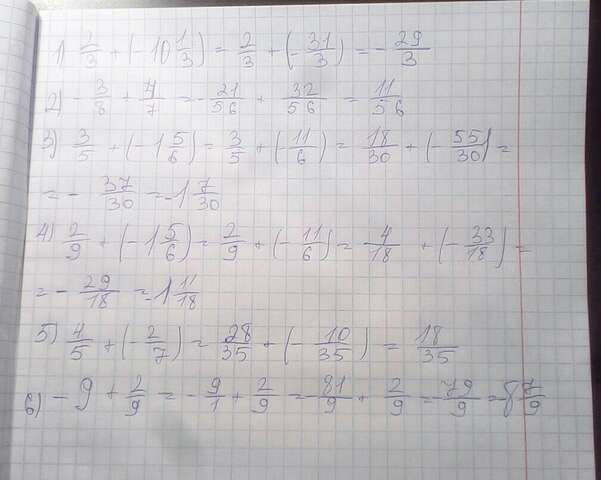 1) 2/3 + (-10 1/3) = 2/3 + (-31/3) = -29/3
2) -3/8 + 4/7 = -21/56 + 32/56 = 11/56
3) 3/5 + (-1 5/6) = 3/5 + (-11/6) = 18/30 + (-55/30) =
= -37/30 = -1 7/30
4) 2/9 + (-1 5/6) = 2/9 + (-11/6) = 4/18 + (-33/18) =
= -29/18 = -1 11/18
5) 4/5 + (-2/7) = 28/35 + (-10/35) = 18/35
6) -9 + 2/9 = -9/1 + 2/9 = -81/9 + 2/9 = -79/9 = 8 7/9